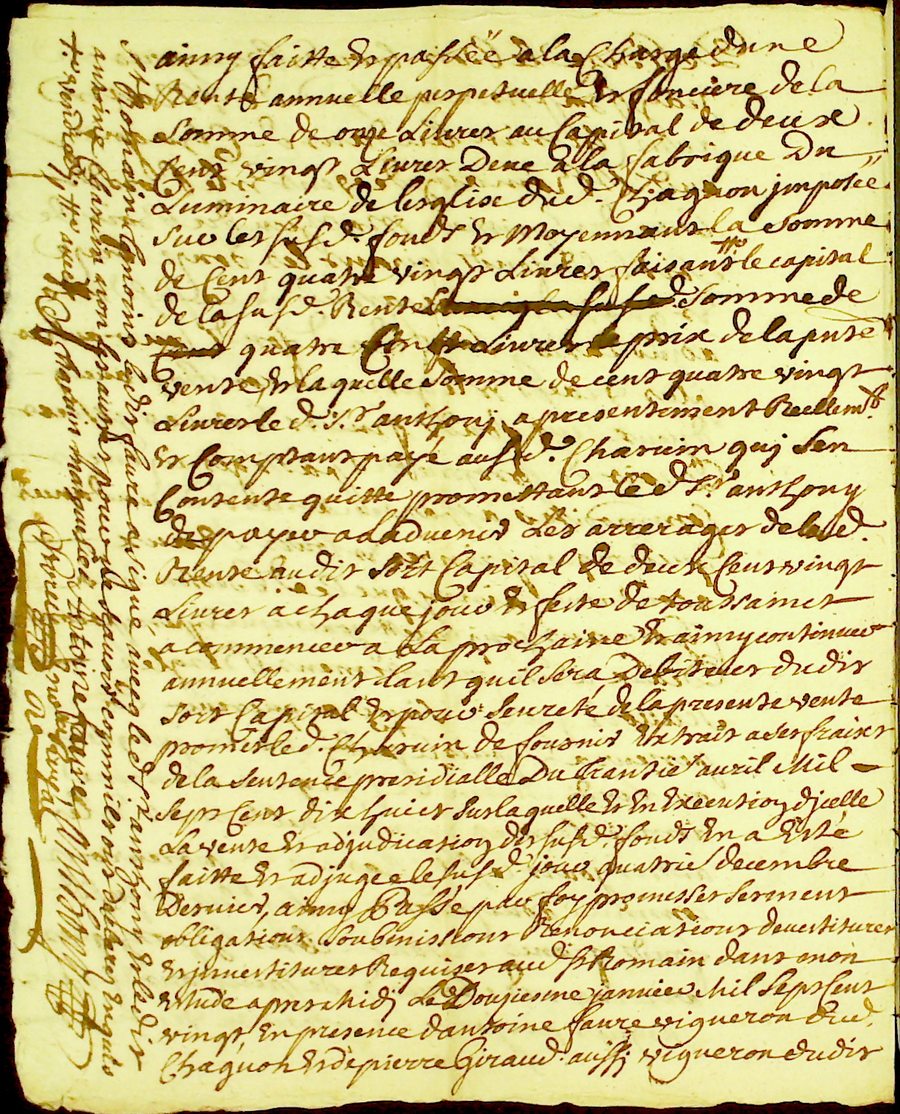 ainsy faitte et passéé a la Charge d'une
Rente annuelle perpetuelle et fonciere de la
Somme de onze Livres au Capital de deux
Cent vingt Livres Deue a la fabrique Du
Luminaire de l'esglise dud. Chagnon imposéé
sur les susd. fonds et Moyennant la Somme
de Cent quatre vingt Livres faisant le capital
de la susd. Rente Somme de
quatre Cent Livres prix de la pnte
vente et laquelle Somme de cent quatre vingt
Livres le d. Sr. anthony a presentement Reellemt
et Comptant payé aud. Charvin quy s'en
Contente quitte promettant le d. Sr anthony
de payer a ladvenir Les arrerages de lad.
Rente audit sort Capital de deux Cent vingt
Livres a chaque jour et feste de toussainct
a commencer a La prochaine et ainsy continuer
annuellement tant quil sera Debiteur dudit
sort Capital et pour seureté de la presente vente
promet le d. Charvin de fournir extrait a ses fraixs
de la sentence presidialle Du trantie avril Mil
sept Cent dix huict sur laquelle et En Execution d'jcelle
La vente et adjudication des susd. fonds en a Esté
faitte et adjugée le susd. jour quatrie decembre
Dernier, ainsy Passé par foy promesses serment
obligations soubmissions Renonciations devestitures
et jnvestitures Requises aud. St Romain dans mon
estude apres Midy Le Douzienne janvier Mil Sept Cent
vingt, En presence d'antoine faure vigneron dud.
Chagnon et de pierre Giraud aussy vigneron dudit
St Romain temoins ledit faure a signé avecq led. Sr anthony et ledit
antoine Charvin a non les autres pour ne sçavoir comme ils ont declaré Enquis
Charvin antoine faure anthony